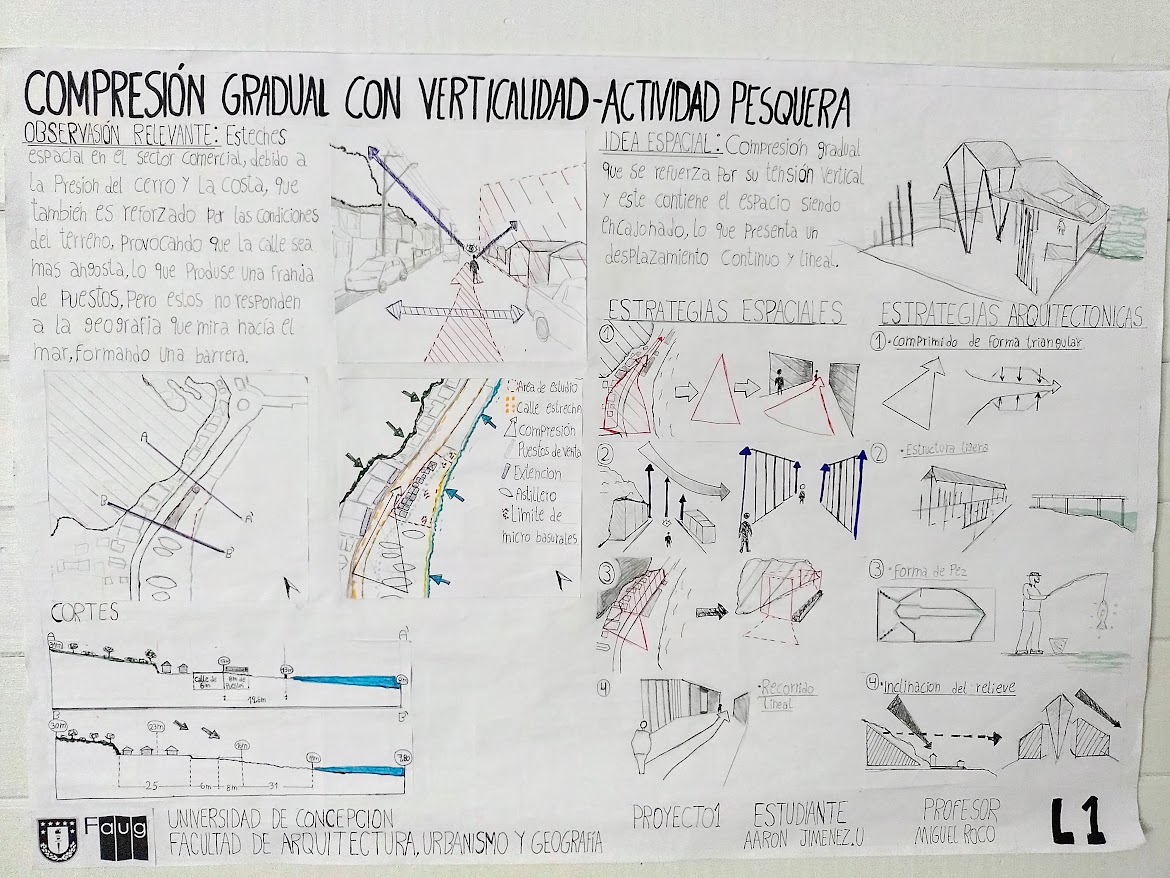 COMPRESIÓN GRADUAL CON VERTICALIDAD-ACTIVIDAD PESQUERA
OBSERVASIÓN RELEVANTE: Esteches
espacial en el sector comercial, debido a
la Presion del cerro y La costa, que
también es reforzado Por las condiciones
del terreno, Provocando que la calle sea
mas angosta, lo que Produse una franja
de Puestos, Pero estos no responden
a la geografia que mira hacía el
mar, formando una barrera.
IDEA ESPACIAL: Compresión gradual
que se refuerza Por su tensión Vertical
y este contiene el espacio siendo
encajonado, lo que Presenta un
desplazamiento Continuo y lineal.
A
B
A'
B'
Area de estudio
Calle estrecha
Compresión
Puestos de Venta
Extencion
Astillero
Limite de
micro basurales
CORTES
A'
Calle de
6m
8m de
Puestos
126m
B
B'
30m
23m
25
6m
8m
31
ESTRATEGIAS ESPACIALES
1
2
3
4
• Recorrido
Lineal
ESTRATEGIAS ARQUITECTONICAS
1 • Comprimido de forma triangular
2 • Estructura ligera
3 • Forma de Pez
4 • Inclinacion del relieve
Faug
UNIVERSIDAD DE CONCEPCION
FACULTAD DE ARQUITECTURA, URBANISMO Y GEOGRAFIA
PROYECTO1
ESTUDIANTE
AARON JIMENEZ.U
PROFESOR
MIGUEL ROCO
L1